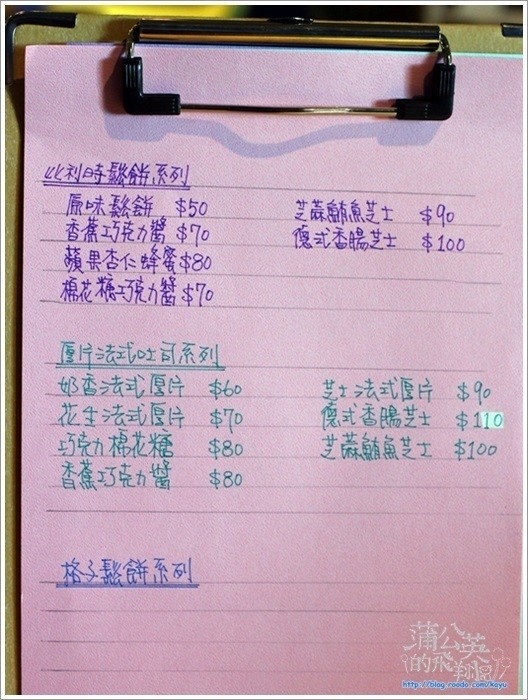 比利時鬆餅系列
原味鬆餅 $50
香蕉巧克力醬 $70
蘋果杏仁蜂蜜 $80
棉花糖巧克力醬 $70
芝蔴鮪魚芝士 $90
德式香腸芝士 $100
厚片法式吐司系列
奶香法式厚片 $60
花生法式厚片 $70
巧克力棉花糖 $80
香蕉巧克力醬 $80
芝士法式厚片 $90
德式香腸芝士 $110
芝蔴鮪魚芝士 $100
格子鬆餅系列
蒲公英
的飛翔
http://blog.roodo.com/kayu